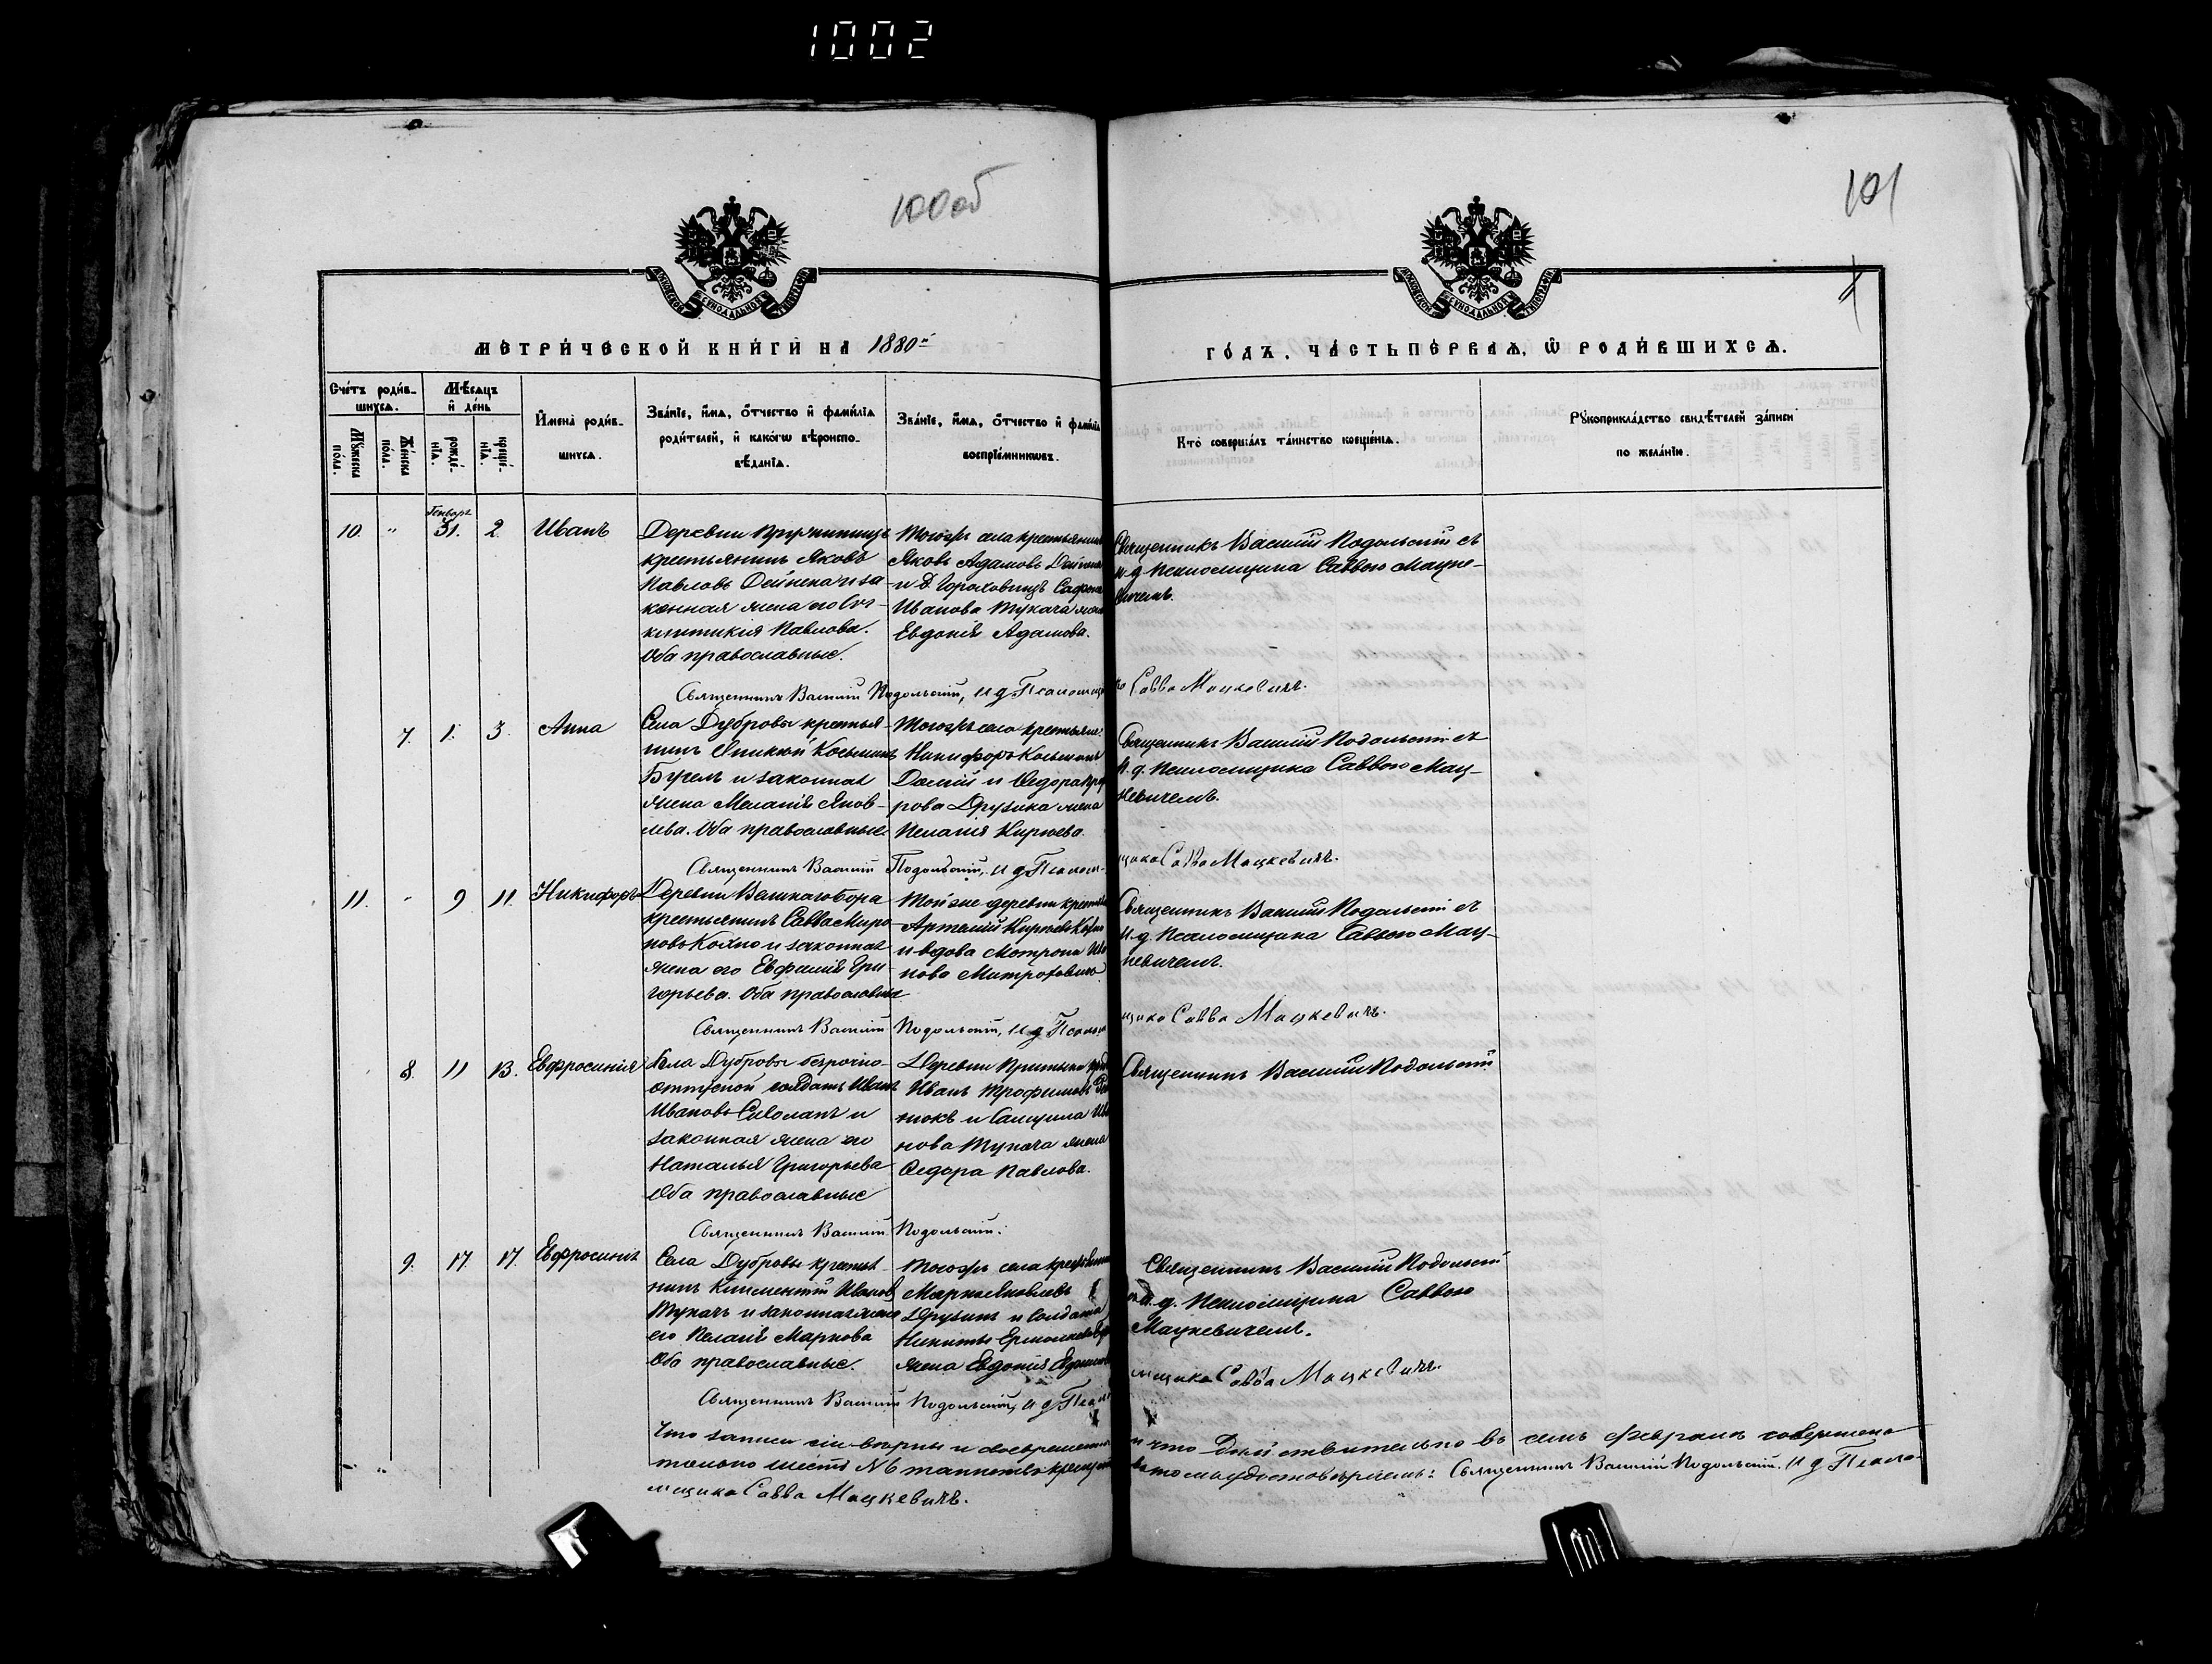 1002
100об
101
МОСКОВСКОЙ СѴНОДАЛЬНОЙ ТИПОГРАФІИ
МОСКОВСКОЙ СѴНОДАЛЬНОЙ ТИПОГРАФІИ
МЕТРИ́ЧЕСКОЙ КНИ́ГИ НА 1880й
ГО́ДЪ, ЧА́СТЬ ПЕ́РВАѦ, Ѡ РОДИ́ВШИХСѦ.
Сче́тъ роди́в-
шихсѧ.
Мѣ́сѧцъ
и҆ день
Мꙋ́жеска
по́ла.
Же́нска
по́ла.
рожде́-
нїѧ.
креще́-
нїѧ.
И҆мена̀ роди́в-
шихсѧ.
Зва́нїе, и҆́мѧ, ѻ҆́тчество и҆ фами́лїѧ
роди́телей, и҆ како́гѡ вѣроиспо-
вѣ́данїѧ.
Зва́нїе, и҆́мѧ, ѻ҆́тчество и҆ фами́лїѧ
воспрїе́мникѡвъ.
Кто̀ соверша́лъ та́инство креще́нїѧ.
Рꙋкоприкла́дство свидѣ́телей за́писи
по жела́нїю.
Генваря
10. " 31. 2. Иванъ
Деревни
крестьянинъ Яковъ
Павловъ Дейнека и за
конная жена его Син-
клитикія Павлова.
Оба православные.
Тогожъ села крестьянинъ
Яковъ Адамовъ
и Д. Гороховищъ
Иванова Тукача жена
Евдокія Адамова.
Священникъ Василій Подольскій съ
и. д. псаломщика Саввою Мацке-
вичемъ.
Священникъ Василій Подольскій, и д Псаломщика Савва Мацкевичъ.
7. 1. 3. Анна
Села Дубровы крестья-
нинъ Косьминъ
Бугель и законная
жена Меланія Яков-
лева. Оба православные.
Тогожъ села крестьяне:
Никифоръ Косьминъ
и Федора
рова Друзика жена
Пелагія Кирѣева.
Священникъ Василій Подольскій съ
И. д. псаломщика Саввою Мац-
кевичемъ.
Священникъ Василій Подольскій, и д Псаломщика Савва Мацкевичъ.
11. " 9 11. Никифоръ
Деревни Великаго бора
крестьянинъ Савва Миро
новъ Кохно и законная
жена его Евфимія Гри-
горьева. Оба православные
Той же деревни
Артемій
и вдова Мотрона
нова Митроховичъ
Священникъ Василій Подольскій съ
И. д. псаломщика Саввою Мац-
кевичемъ.
Священникъ Василій Подольскій, и д Псаломщика Савва Мацкевичъ.
8. 11 13. Евфросинія
Села Дубровы безсрочно-
отпускной солдатъ Иванъ
Ивановъ Сиволапъ и
законная жена его
Наталья Григорьева
Оба православные
Деревни
Иванъ Трофимовъ
нюкъ и
нова Тукача жена
Федора Павлова.
Священникъ Василій Подольскій
Священникъ Василій Подольскій.
9. 17. 17. Евфросинія
Села Дубровы крестья-
нинъ Климентій Ивановъ
Тукачъ и законная жена
его Пелагія Маркова
Оба православные.
Тогожъ села крестьянинъ
Марко Яковлевъ
Друзикъ и солдата
Никиты
жена Евдокія
Священникъ Василій Подольскій
и. д. псаломщика Саввою
Мацкевичемъ.
Священникъ Василій Подольскій, и д Псаломщика Савва Мацкевичъ.
Что записи сіи вѣрны и своевременны и что дѣйствительно въ семъ февралѣ совершено
только шесть № 6 таинствъ крещенія въ томъ удостовѣряемъ: Священникъ Василій Подольскій. И д Псало-
мщика Савва Мацкевичъ.